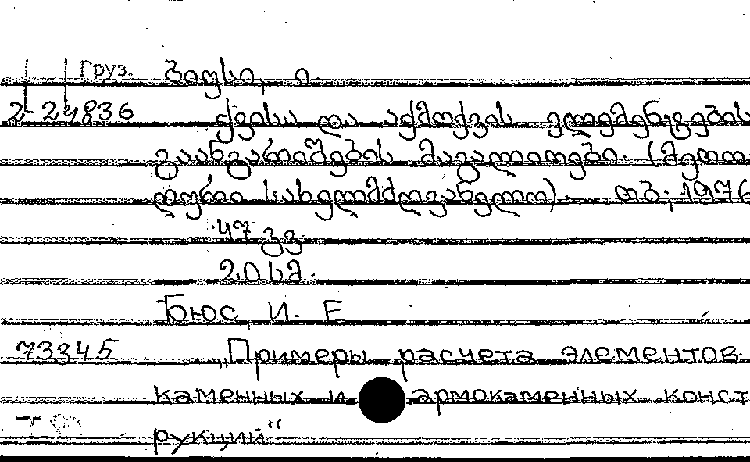 Груз. ბიუსი, ი.
2-24836 ქვისა და არმოქვის ელემენტების
გაანგარიშების მაგალითები. (მეთო
დური სახელმძღვანელო). თბ., 1976
47 გვ.
20 სმ.
Бюс И. Е
73345 „Примеры расчета элементов
каменных и армокаменных конст
рукций“